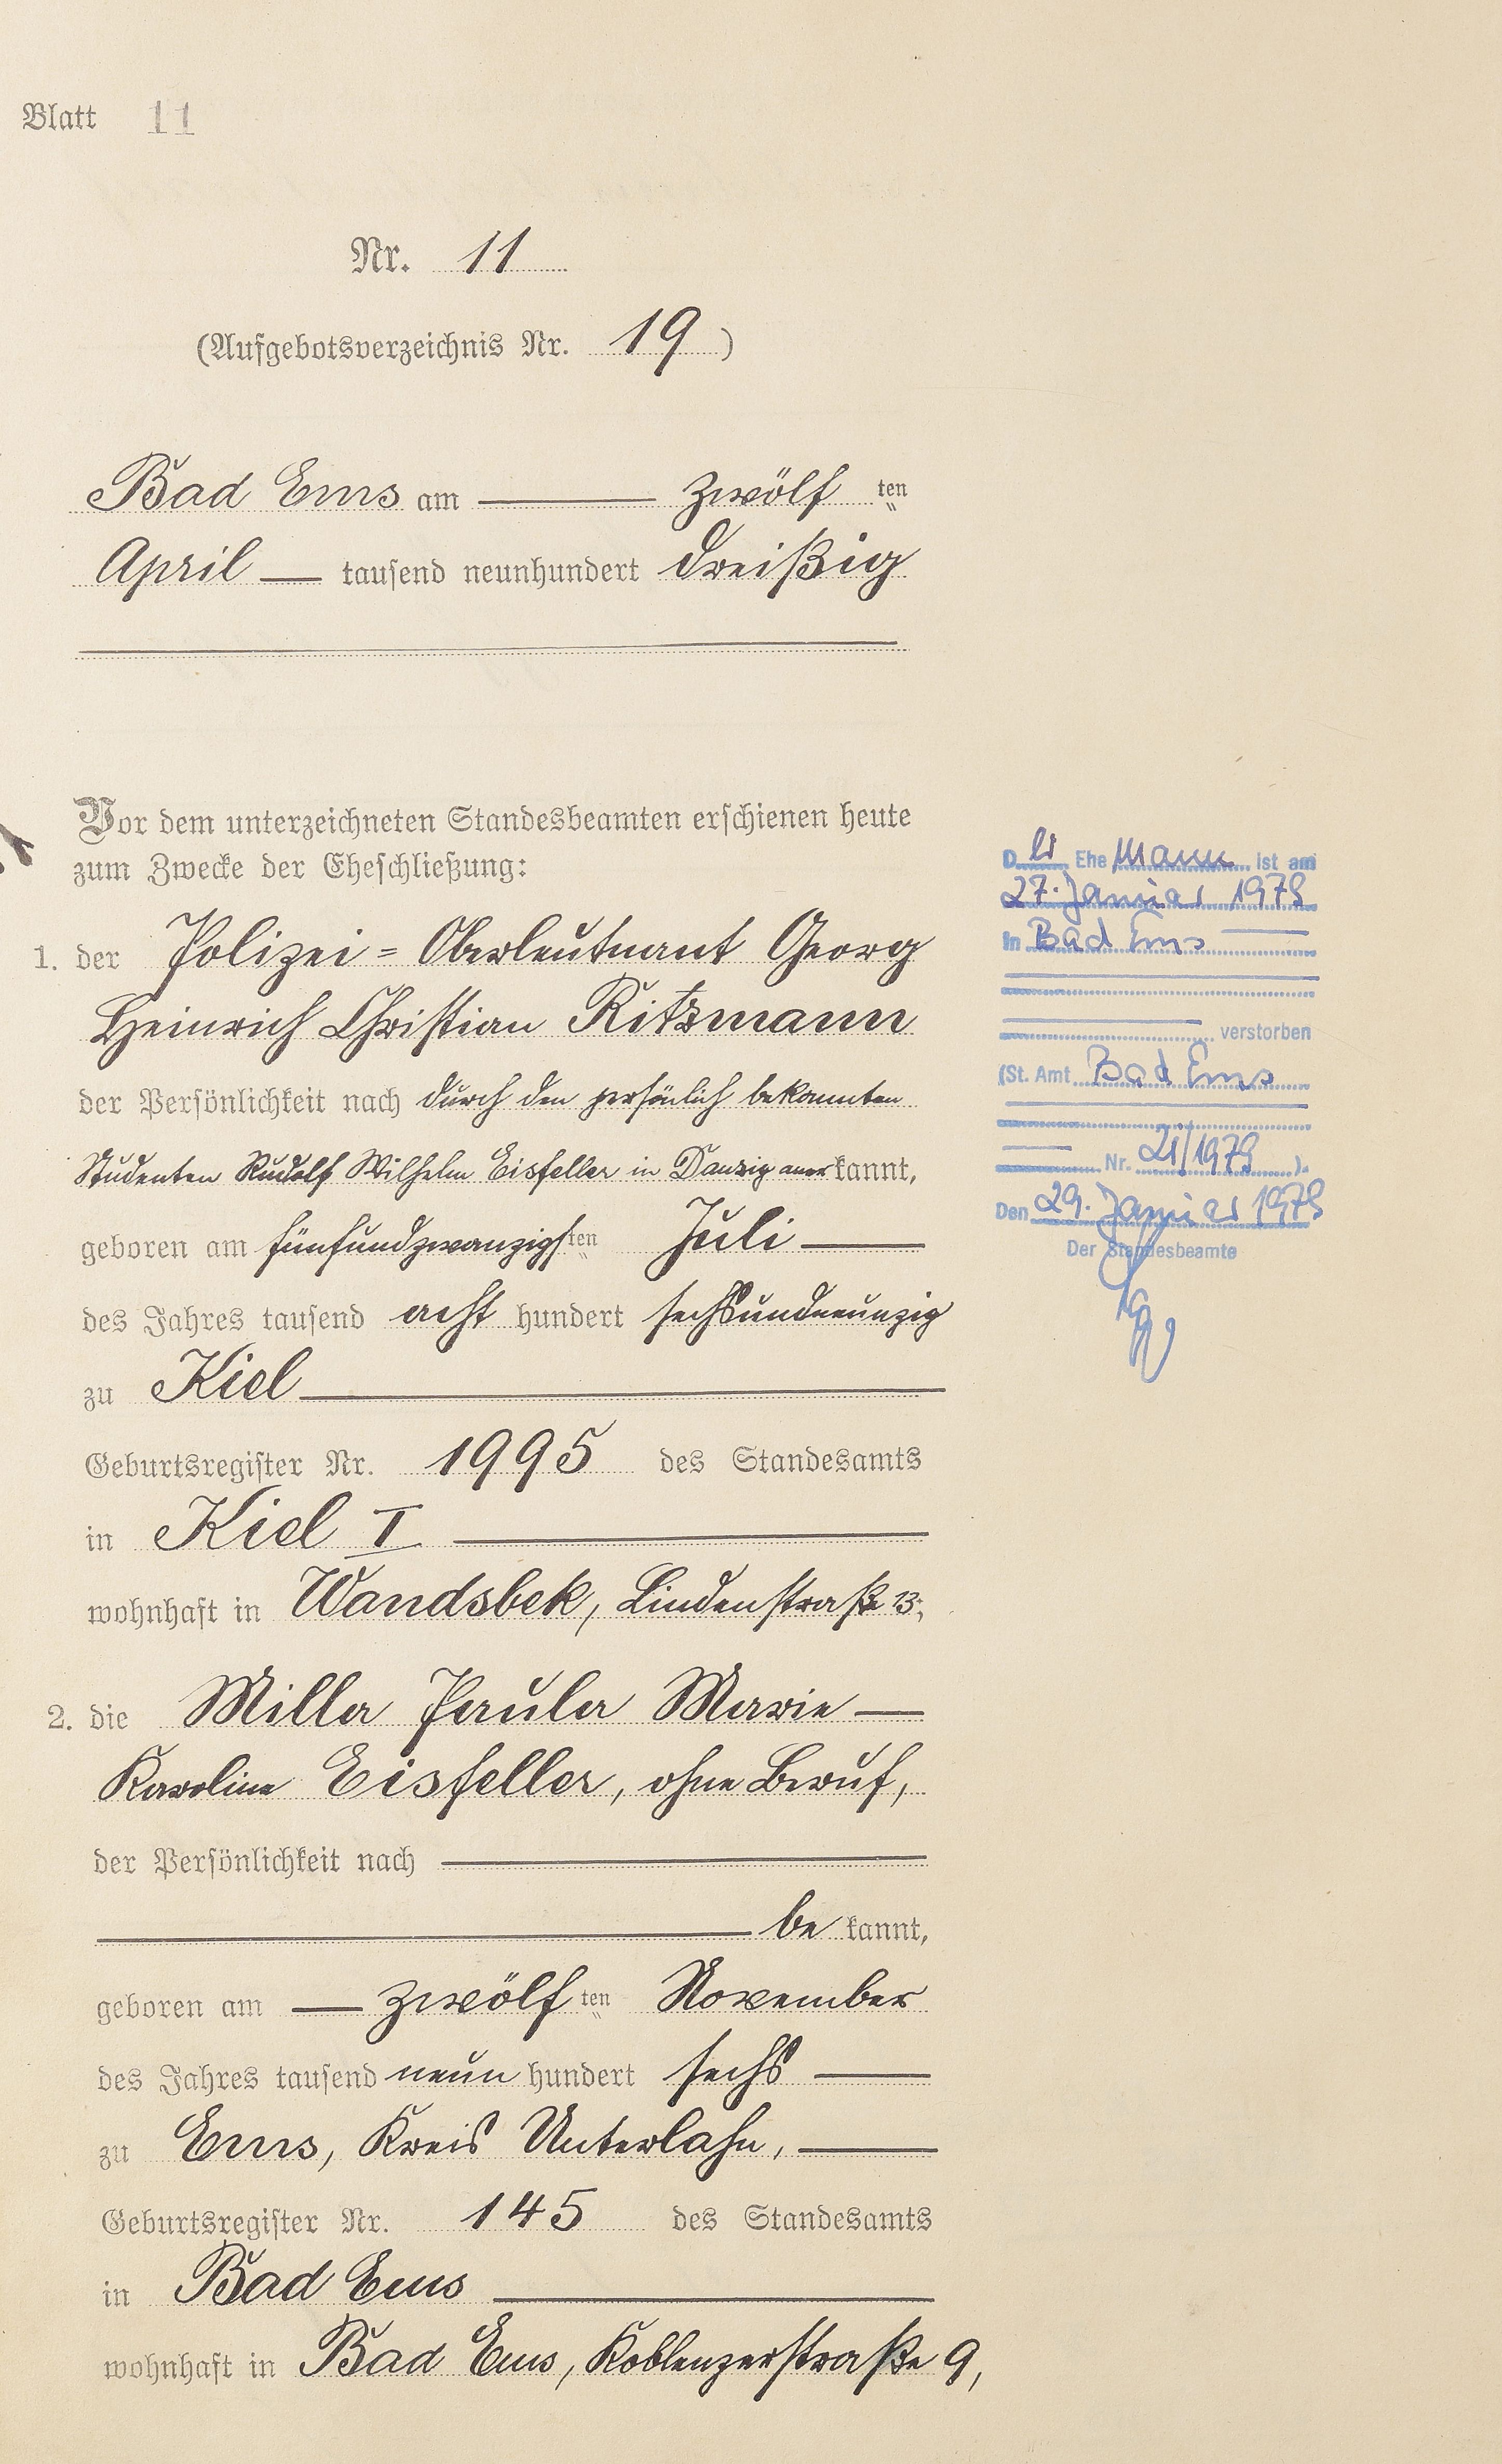 Blatt 11
Nr. 11
(Aufgebotsverzeichnis Nr. 19)
Bad Ems am — zwölf ten
April — tausend neunhundert dreißig
Vor dem unterzeichneten Standesbeamten erschienen heute
zum Zwecke der Eheschließung:
1. der Polizei = Oberleutnant Georg
Heinrich Christian Ritzmann
der Persönlichkeit nach durch den persönlich bekannten
Studenten Rudolf Wilhelm Eisfeller in Danzig anerkannt,
geboren am fünfundzwanzigsten Juli —
des Jahres tausend acht hundert sechsundneunzig
zu Kiel —
Geburtsregister Nr. 1995 des Standesamts
in Kiel I —
wohnhaft in Wandsbek, Lindenstraße 13;
2. die Milla Paula Marie —
Karoline Eisfeller, ohne Beruf,
der Persönlichkeit nach —
— be kannt,
geboren am — zwölf ten November
des Jahres tausend neun hundert sechs —
zu Ems, Kreis Unterlahn, —
Geburtsregister Nr. 145 des Standesamts
in Bad Ems —
wohnhaft in Bad Ems, Koblenzerstraße 9,
Der Ehemann ist am
27. Januar 1979
in Bad Ems —
verstorben
(St. Amt Bad Ems
Nr. 21/1979).
Den 29. Januar 1979
Der Standesbeamte